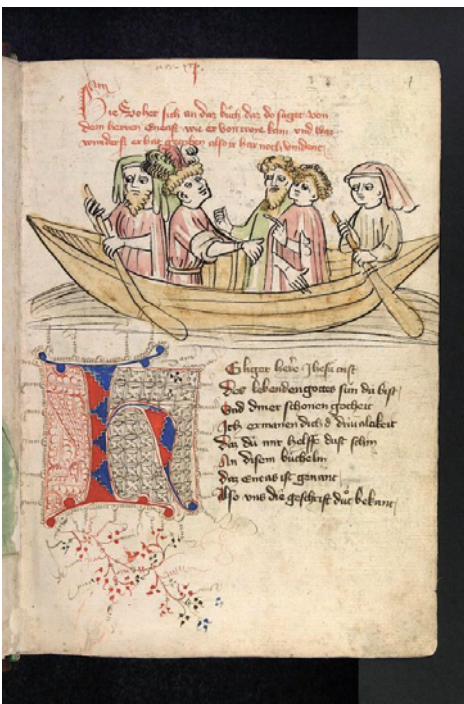 Hie Vohet sich an daz buch daz do saget von
dem herren Eneas wie er von troye kam vnd waz
wunders er hat also ir har noch vindent
H
Eiliger here Jhesu crist
Des lebenden gottes sun du bist
Vnd diner schonen gotheit
Ich ermanen dich d drivaltikeit
Daz du mir helffe dust schin
An disem büchelin
Daz Eneas ist genant
Also vns die geschrift dut bekant